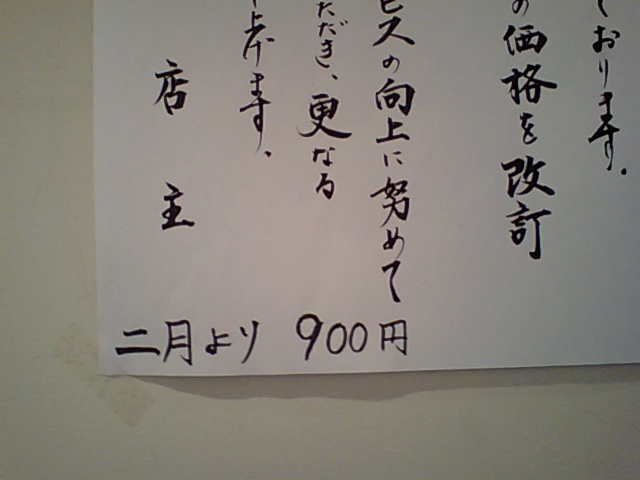 ております。
の価格を改訂
ビスの向上に努めて
ただき、更なる
上げます。
店主
二月より 900円